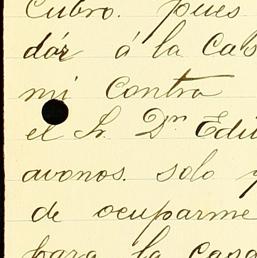 Cubro. pues
dár á la Cas
mi Contra
el Sr. Dn Edu
avonos. solo y
de ocuparme
para la Casa